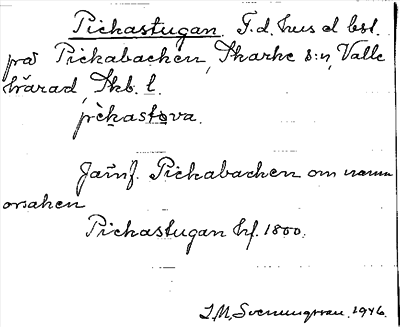 Pickastugan. F.d. hus el. bst.
på Pickabacken, Skarke s:n, Valle
härad, Skb. l.
pɩ̀kastɷva.
Jämf. Pickabacken om namn
orsaken
Pickastugan hf. 1800.
S.M. Svenungsson. 1946.